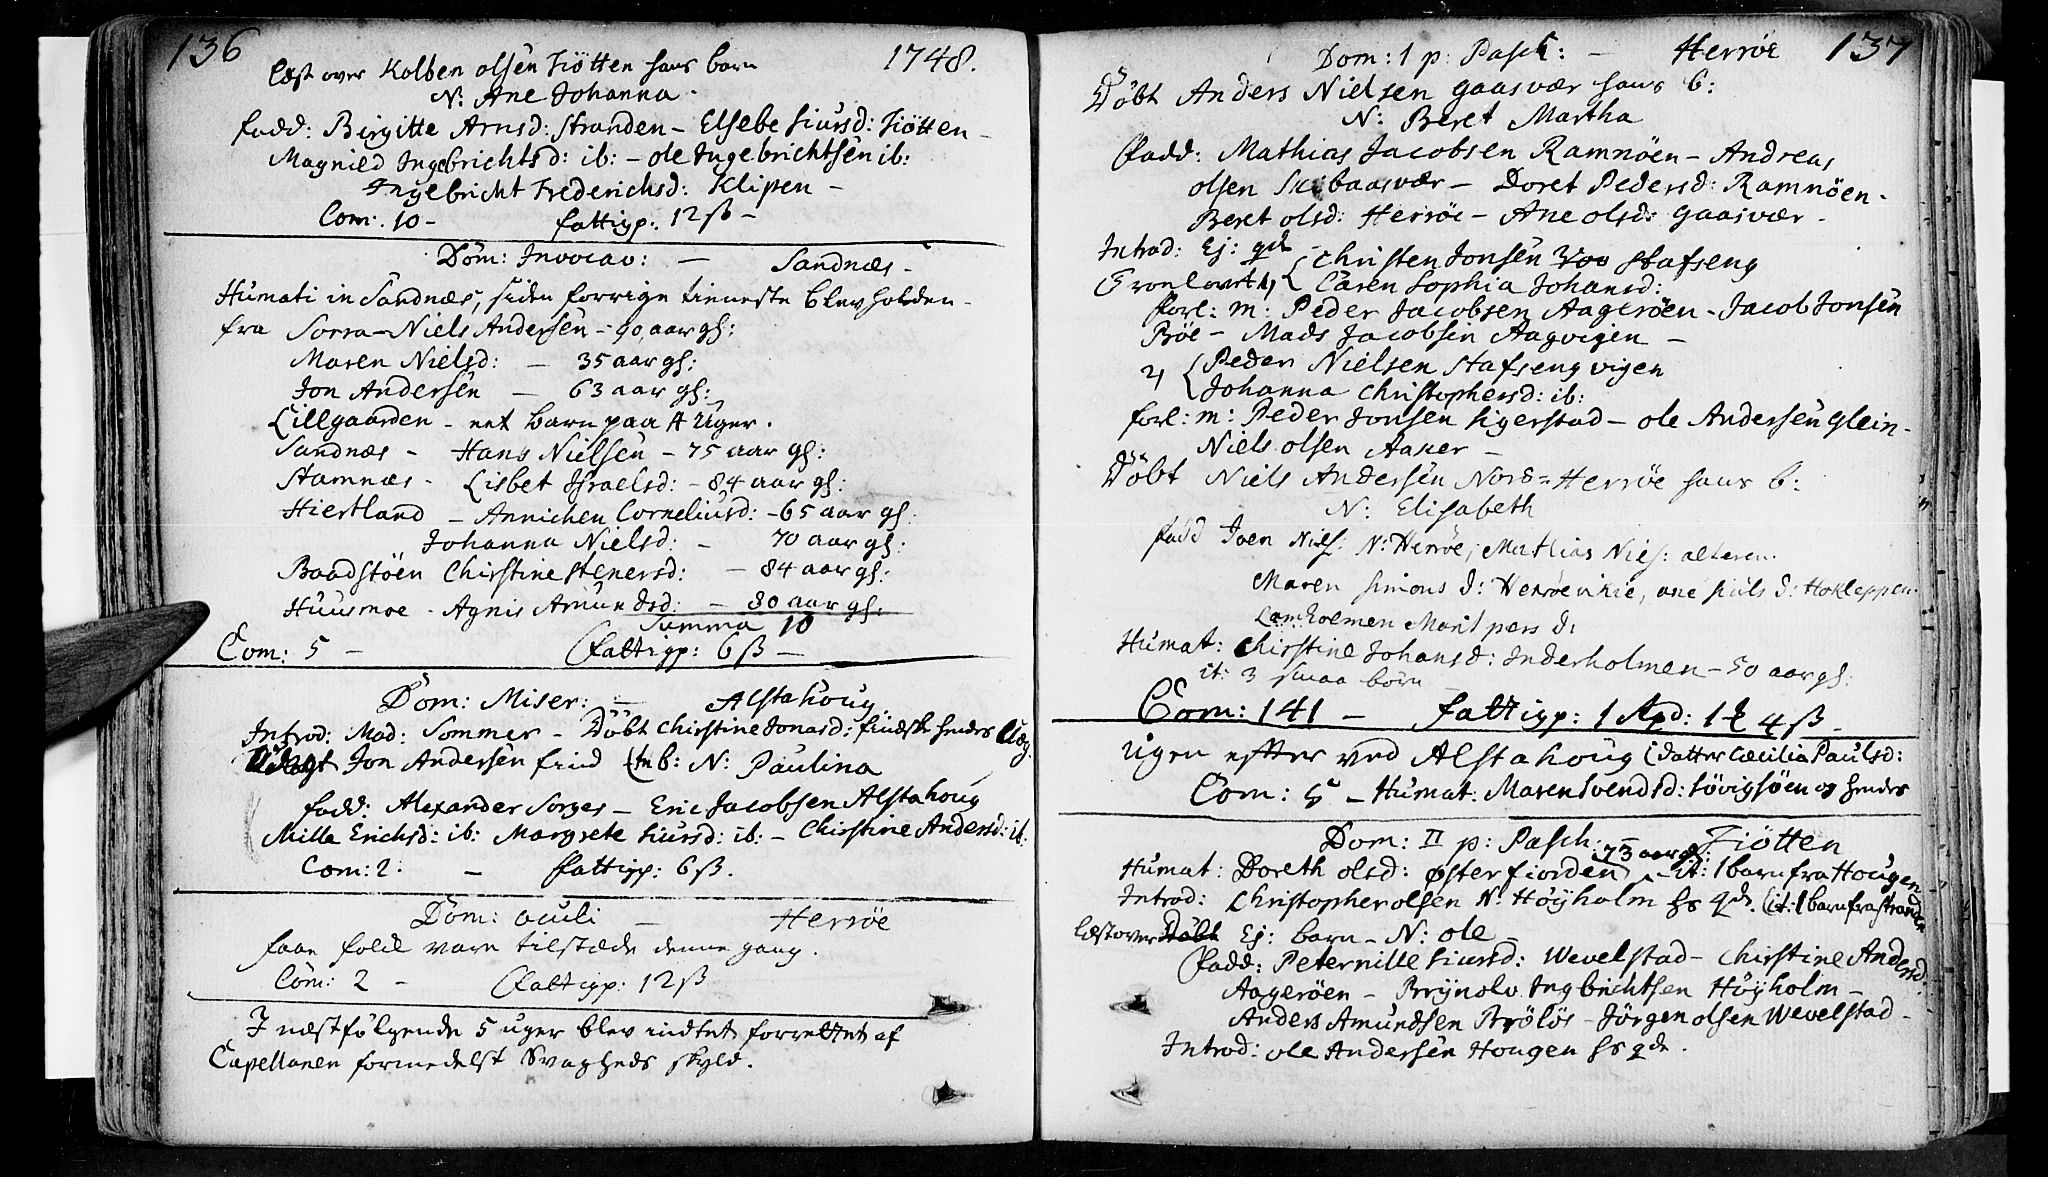 136
1748.
læst over Kolben olsen Tiötten hans barn
N: Ane Johanna.
fadd: Birgitte Arnsd: Stranden - Elsebe Siursd: Tiötten -
Magnild Ingebrichtsd: ib: - ole Ingebrichtsen ib:
Ingebricht Frederichsd: Klipen -
Com: 10 - fattigp: 12 ß -
Dom: Invocav: - Sandnæs -
Humati in Sandnæs, siden forrige tieneste blev holden -
fra Sorra - Niels Andersen - 90 aar gl:
Maren Nielsd: - 35 aar gl:
Jon Andersen - 63 aar gl:
Lillgaarden - eet barn paa 4 Uger.
Sandnæs - Hans Nielsen - 75 aar gl:
Stamnæs - Lisbet Israelsd: - 84 aar gl:
Hiertland - Annichen Corneliusd: - 65 aar gl.
Johanna Nielsd: - 70 aar gl:
Baadstöen Christine Stenersd: - 84 aar gl:
Huusmoe - Agnis Amundsd: - 80 aar gl:
Summa 10
Com: 5 - fattigp: 6 ß -
Dom: Miser: - Alstahoug.
Introd: Mad: Sommer - Döbt Christine Jonasd: findsk hendes Uæg:
Udlagt Jon Andersen find b: N: Paulina
fadd: Alexander Sorges - Eric Jacobsen Alstahoug
Mille Erichsd: ib: Margrete Siursd: ib: - Christine Andersd: ib:
Com: 2. - fattigp: 6 ß.
Dom: oculi - Herröe
faae folck vare tilstæde denne gang.
Com: 2 - fattigp: 12 ß
I næstfölgende 5 uger blev indtet forrettet af
Capellanen formedelst Svagheds skyld.
Dom: 1 p: Pasch: - Herröe 137
Döbt Anders Nielsen gaasvær hans b:
N: Beret Martha
fadd: Mathias Jacobsen Ramnöen - Andreas
olsen Skibaasvær - Doret Pedersd: Ramnöen -
Beret olsd: Herröe - Ane olsd: gaasvær -
Introd: Ej: qde -
Troelovet 1) Christen Jonsen Stafseng
Caren Sophia Johansd:
forl: m: Peder Jacobsen Aageröen - Jacob Jonsen
Böe - Mads Jacobsen Aagvigen -
2) Peder Nielsen Stafseng vigen
Johanna Christophersd: ib:
forl: m: Peder Jonsen Sigerstad - ole Andersen glein -
Niels olsen Aaker -
Döbt Niels Andersen Nord-Herröe hans b:
N: Elisabeth
fadd Joen Niels: N: Herröe, Mathias Niels:
Maren Simons d: Herröevikie, ane Siuls d: Hokleppen.
Lamholmen Marit pers d:
Humat: Christine Johansd: Inderholmen - 50 aar gl:
it: 3 smaa börn
Com: 141 - fattigp: 1 Spd: 1 4 ß -
Ugen efter ved Alstahoug (datter Cæcilia Paulsd:
Com: 5 - Humat: Maren Svendsd: Sövigsöen og hendes
Dom: II p: Pasch: - Tiötten
Humat: Doreth olsd: østerfiorden 73 aar gl: - it: 1 barn fra Hougen
Introd: Christopher olsen N: Höyholm hs qde. (it: 1 barn fra Stranden
læst over Döbt Ej: barn - N: ole -
fadd: Peternille Siursd: Wevelstad - Christine Andersd:
Aageröen - Brynolv Ingbrichtsen Höyholm -
Anders Amundsen Brölös - Jörgen olsen Wevelstad -
Introd: ole Andersen Hougen hs qde.